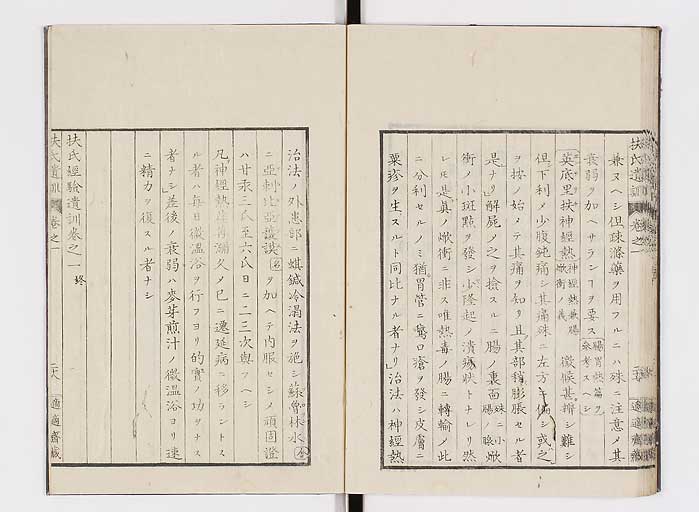 兼ヌヘシ但疎滌藥ヲ用フルニハ殊ニ注意ノ其
衰弱ヲ加ヘサランヿヲ要ス腸胃熱篇ヲ參考スヘシ
英底里扶神經熱神經熱兼腸焮衝ノ義徴候甚辨シ難シ
但下利ノ少腹鈍痛シ其痛殊ニ左方ニ偏シ或ハ之
ヲ按ノ始メテ其痛ヲ知リ且其部稍膨脹セル者
是ナリ解屍ノ之ヲ撿スルニ腸ノ裏面殊ニ小腸ノ
衝ノ小斑點ヲ發シ少隆起ノ潰瘍狀トナレリ然
レ𪜈是眞ノ焮衝ニ非ス唯熱毒ノ腸ニ轉輸ノ此
ニ分利セルノミ猶胃管ニ鵞口瘡ヲ發シ皮膚ニ
粟疹ヲ生スルト同比ナル者ナリ治法ハ神經熱
扶氏遺訓 卷之一
適適齋藏
治法ノ外患部ニ蜞鍼冷濕法ヲ施シ蘇魯林水
ニ亞剌比亞護謨ヲ加ヘテ内服セシメ頑固證
ハ甘汞三氏至六氏日ニ二三次與フヘシ
凡神經熱荏苒彌久ノ已ニ遷延病ニ移ラントス
ル者ハ毎日微温浴ヲ行フヨリ的實ノ功ヲナス
者ナシ差後ノ衰弱ハ麥芽煎汁ノ微温浴ヨリ速
ニ精力ヲ復スル者ナシ
扶氏經驗遺訓卷之一 終
扶氏遺訓 卷之一
二十八 適適齋藏